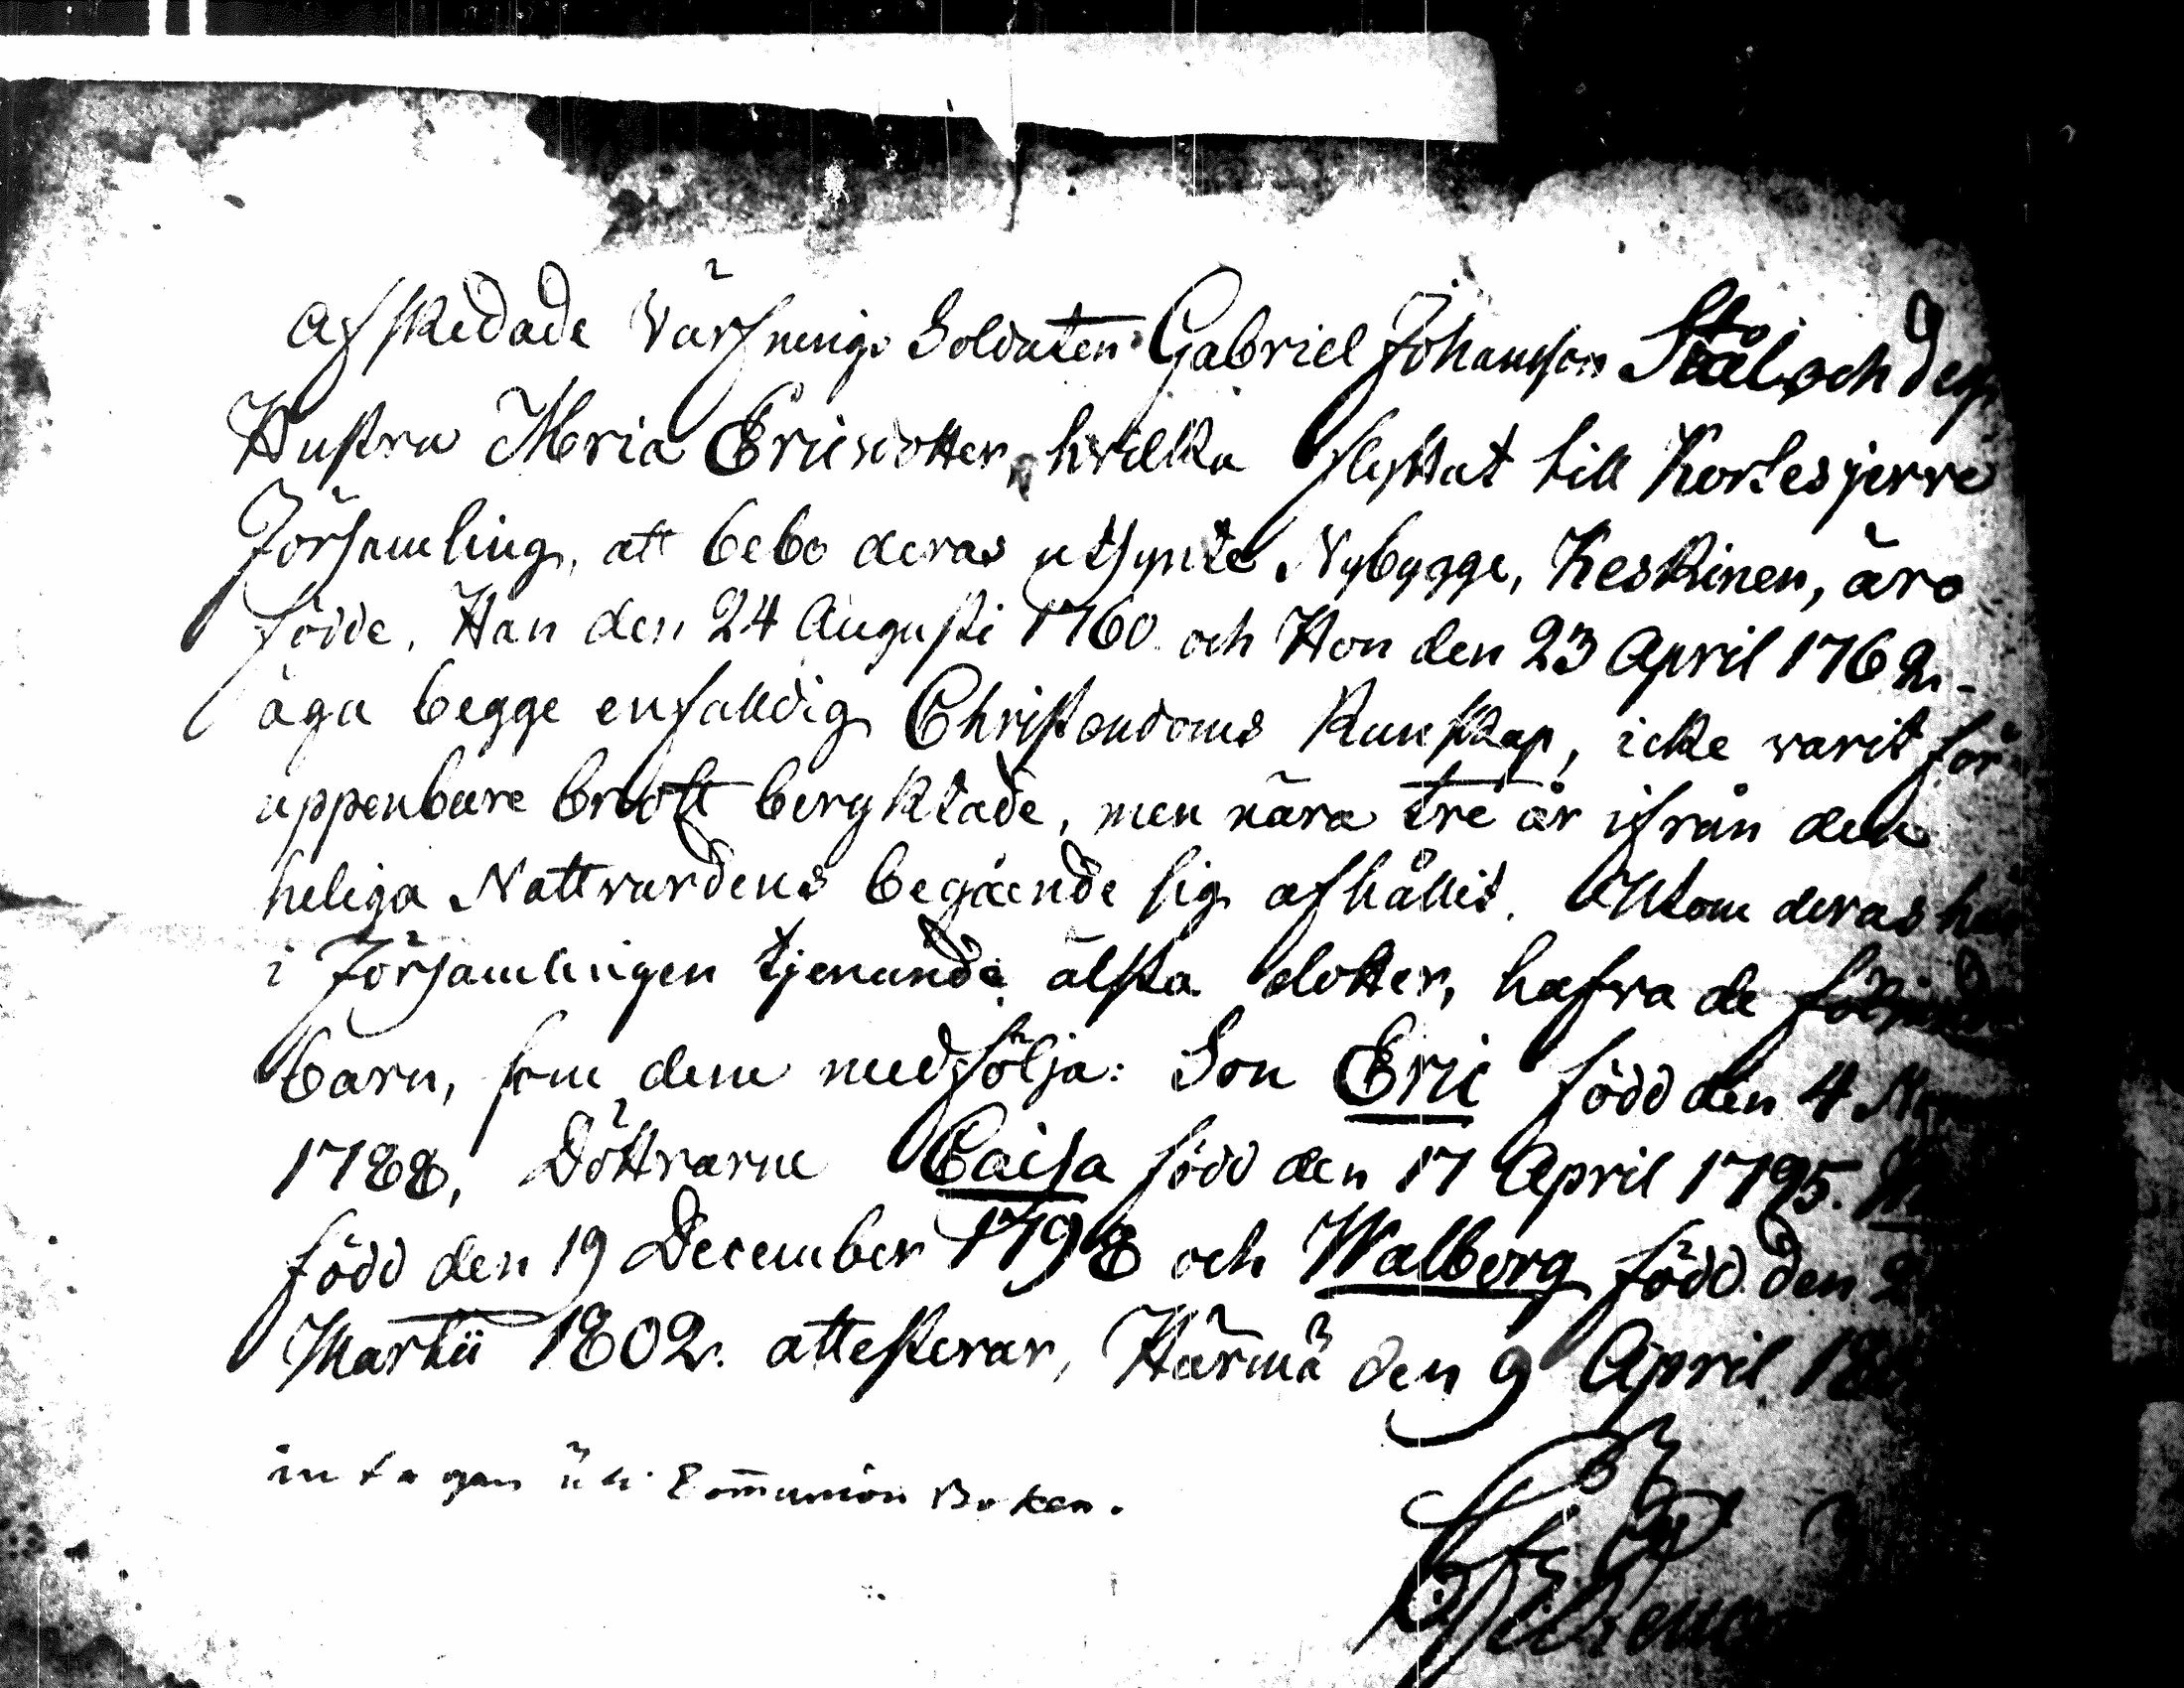 Afskedade Värfnings Soldaten Gabriel Johansson Stål och dess
Hustru Maria Ericsdotter, hvilka flyttat till Kortesjerre
Församling, att bebo deras utsynte Nybygge, Keskinen, äro
födde, Han den 24 Augusti 1760 och Hon den 23 April 1762.
äga begge enfalldig Christendoms Kunskap, icke varit för
uppenbare brott berycktade, men nära tre år ifrån den
heliga Nattvardens begående sig afhållit. Utom deras här
i Församlingen tjenande älsta dotter, hafva de
barn, som dem medfölja: Son Eric född den 4
1788, Döttrarne Caisa född den 17 April 1795.
född den 19 December 1798 och Walborg född den
Martii 1802. attesterar, Härmä den 9 April
intagen uti Communion Boken.